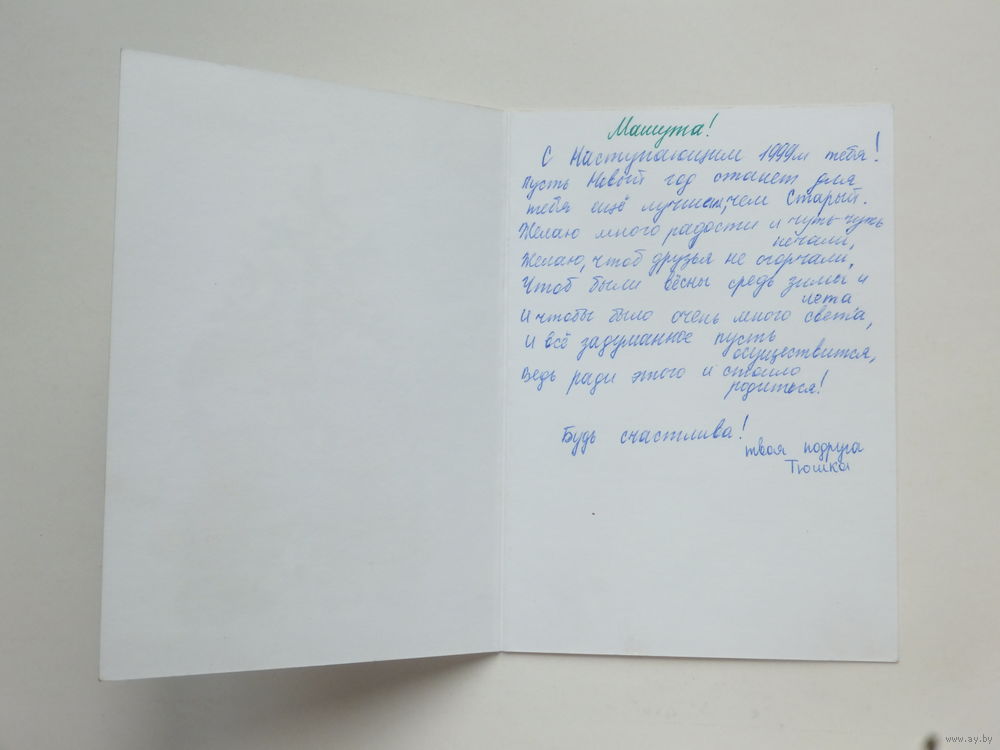 Машута!
С Наступающим 1999м тебя!
Пусть Новый год станет для
тебя ещё лучшим, чем Старый.
Желаю много радости и чуть-чуть
печали,
Желаю, чтоб друзья не огорчали,
Чтоб были вёсны средь зимы и
лета
И чтобы было очень много света,
И всё задуманное пусть
осуществится,
Ведь ради этого и стоило
родиться!
Будь счастлива!
твоя подруга
Тюшка
www.ay.by